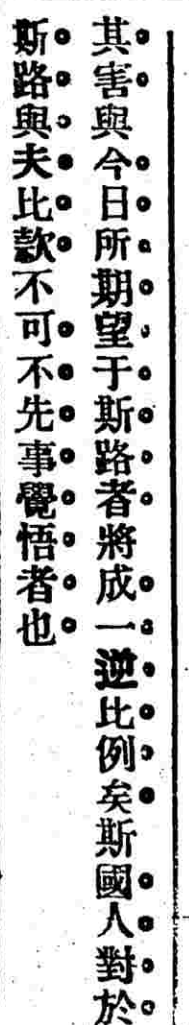 其害與今日所期望于斯路者將成一逆比例矣斯國人對於
斯路與夫比款不可不先事覺悟者也